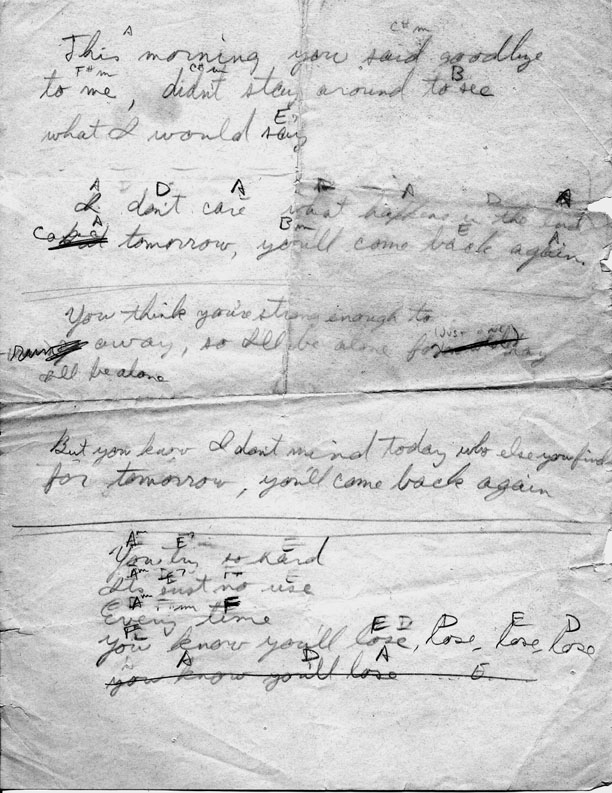 A C#m
This morning you said goodbye
F#m C#m B
to me, didn't stay around to see
E7
what I would say
A D D A D A D A
I don't care what happens in the end
A Bm E A
tomorrow, you'll come back again
You think you're strong enough to
away, so I'll be alone for (just one) day
I'll be alone
But you know I dont mind today who else you find
for tomorrow, you'll come back again
Am E7 E
You try so hard
Am E7 E
Its just no use
Am F
Every time
E E D E D
you know you'll lose, lose, lose, lose
A D A E
you know you'll lose